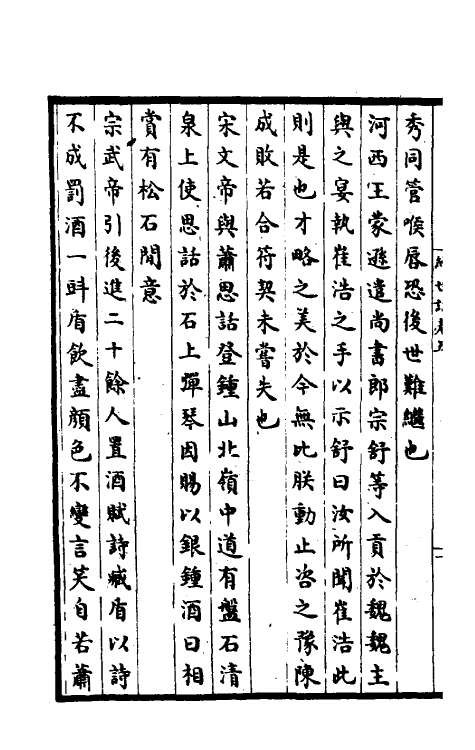 秀同管喉唇恐後世難繼也
河西王蒙遜遣尚書郎宗舒等入貢於魏魏主
與之宴執崔浩之手以示舒曰汝所聞崔浩此
則是也才略之美於今無比朕動止咨之豫陳
成敗若合符契未嘗失也
宋文帝與蕭思話登鍾山北嶺中道有盤石清
泉上使思話於石上彈琴因賜以銀鍾酒曰相
賞有松石間意
宗武帝引後進二十餘人置酒賦詩臧盾以詩
不成罰酒一㪷盾飲盡顔色不變言笑自若蕭